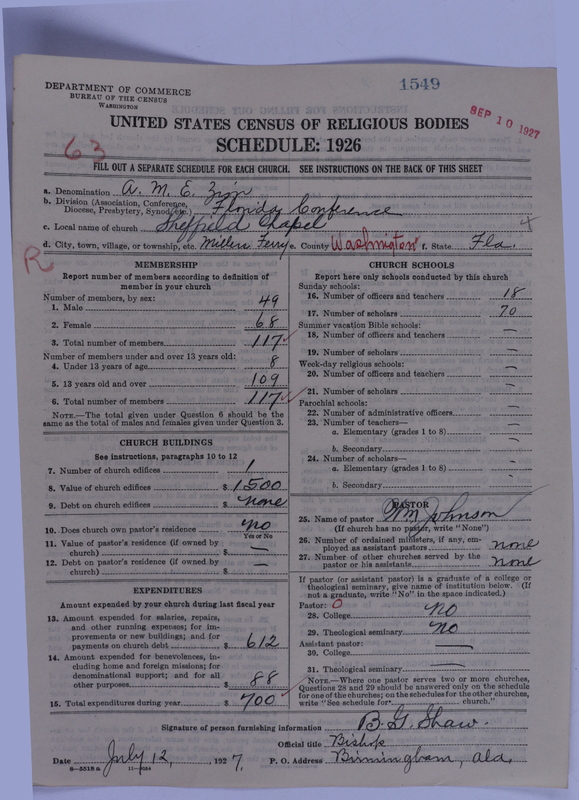 1549
DEPARTMENT OF COMMERCE
BUREAU OF THE CENSUS
WASHINGTON
SEP 10 1927
UNITED STATES CENSUS OF RELIGIOUS BODIES
SCHEDULE: 1926
63
FILL OUT A SEPARATE SCHEDULE FOR EACH CHURCH. SEE INSTRUCTIONS ON THE BACK OF THIS SHEET
a. Denomination A. M. E. Zion
b. Division (Association, Conference, Diocese, Presbytery, Synod, etc.) Florida Conference
c. Local name of church Sheffield Chapel
d. City, town, village, or township, etc. Millers Ferry e. County Washington f. State Fla.
R
MEMBERSHIP
Report number of members according to definition of
member in your church
Number of members, by sex:
1. Male 49
2. Female 68
3. Total number of members 117
Number of members under and over 13 years old:
4. Under 13 years of age 8
5. 13 years old and over 109
6. Total number of members 117
NOTE.—The total given under Question 6 should be
same as the total of males and females given under Question 3.
CHURCH BUILDINGS
See instructions, paragraphs 10 to 12
7. Number of church edifices 1
8. Value of church edifices $ 1500
9. Debt on church edifices $ none
10. Does church own pastor's residence no
Yes or No
11. Value of pastor's residence (if owned by
church) $ —
12. Debt on pastor's residence (if owned by
church) $ —
EXPENDITURES
Amount expended by your church during last fiscal year
13. Amount expended for salaries, repairs,
and other running expenses; for im-
provements or new buildings; and for
payments on church debt $ 612
14. Amount expended for benevolences, in-
cluding home and foreign missions; for
denominational support; and for all
other purposes $ 88
15. Total expenditures during year $ 700
CHURCH SCHOOLS
Report here only schools conducted by this church
Sunday schools:
16. Number of officers and teachers 18
17. Number of scholars 70
Summer vacation Bible schools:
18. Number of officers and teachers —
19. Number of scholars —
Week-day religious schools:
20. Number of officers and teachers —
21. Number of scholars —
Parochial schools:
22. Number of administrative officers —
23. Number of teachers—
a. Elementary (grades 1 to 8) —
b. Secondary —
24. Number of scholars—
a. Elementary (grades 1 to 8) —
b. Secondary —
PASTOR
25. Name of pastor Wm Johnson
(If church has no pastor, write "None")
26. Number of ordained ministers, if any, em-
ployed as assistant pastors none
27. Number of other churches served by the
pastor or his assistants none
If pastor (or assistant pastor) is a graduate of a college or
theological seminary, give name of institution below. (If
not a graduate, write "No" in the space indicated.)
Pastor: 0
28. College no
29. Theological seminary no
Assistant pastor: —
30. College
31. Theological seminary —
NOTE.—Where one pastor serves two or more churches,
Questions 28 and 29 should be answered only on the schedule
for one of the churches; on the schedules for the other churches,
write "See schedule for church."
Signature of person furnishing information B. G. Shaw.
Official title Bishop
Date July 12, 1927. P. O. Address Birmingham, Ala.
8—5518a 11—9034